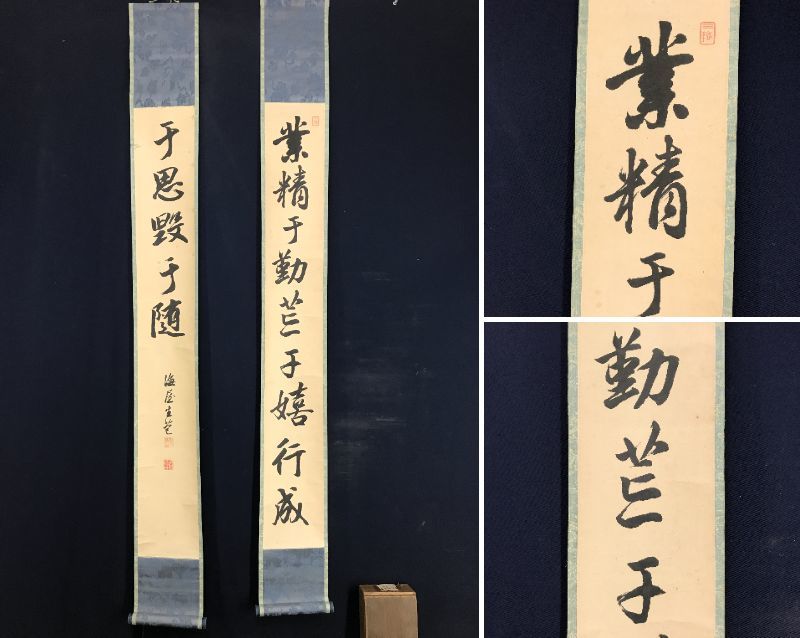 業精于勤荒于嬉行成
于思毀于随
海屋生苞
業精于
勤荒于